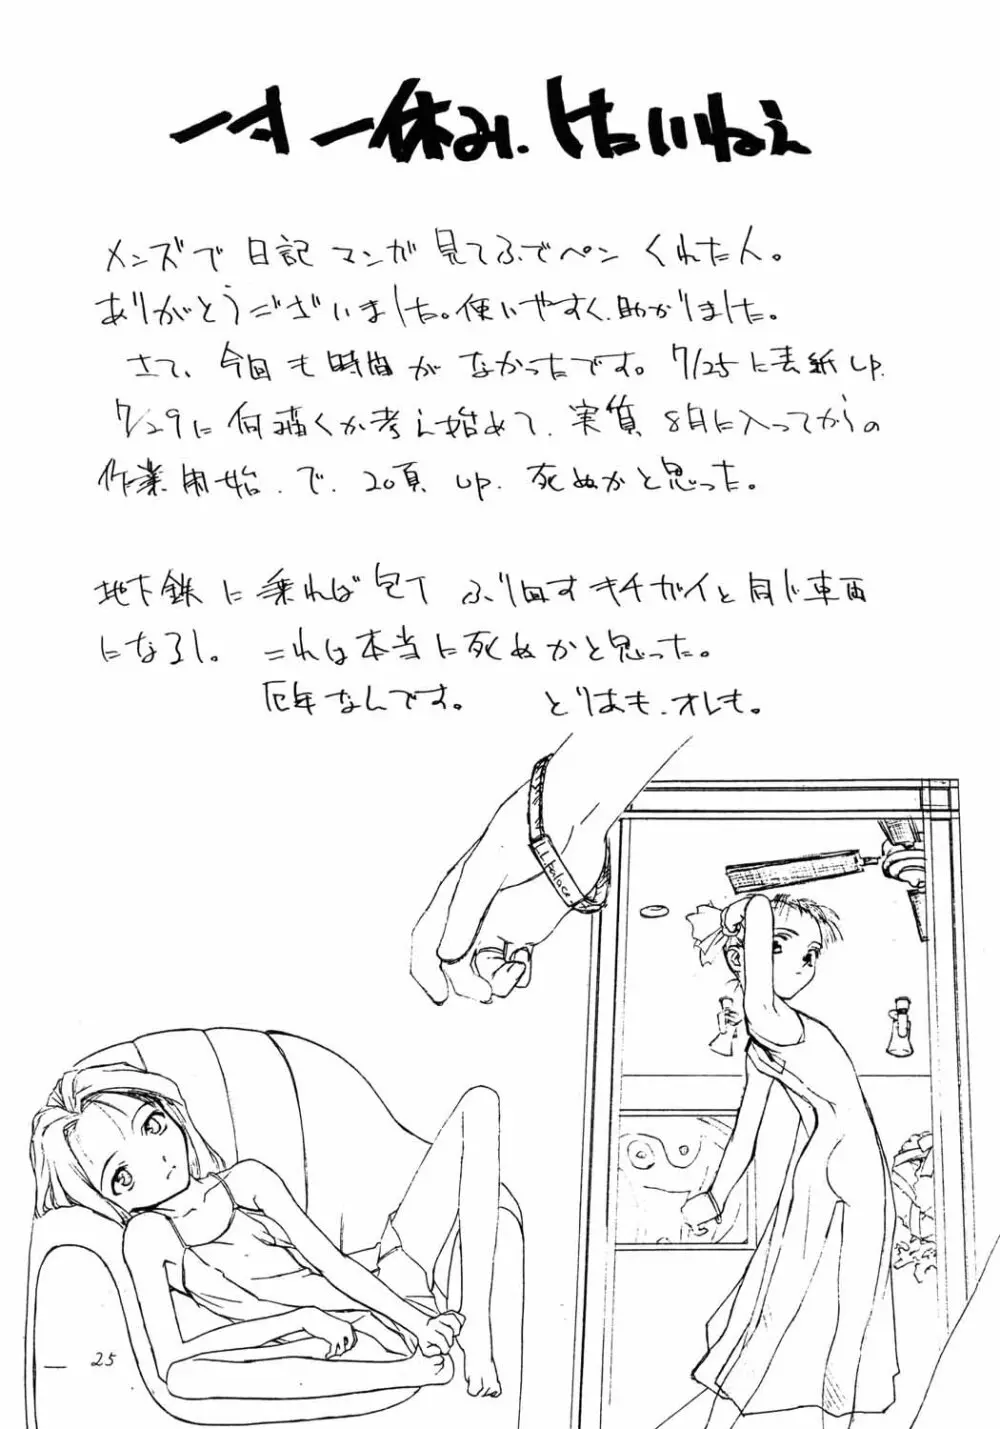 一寸一休み、した いねぇ
メンズで 日記 マンガ 見てふでペン くれた人。
ありがとうございました。使いやすく、助かりました。
さて、今回も時間が なかったです。7/25に表紙up.
7/29に何描くか考え始めて、実質 8月に入ってからの
作業開始.で.20頁 up. 死ぬかと思った。
地下鉄に乗れば包丁 ふり回すキチガイと同じ車両
になるし。 これは本当に死ぬかと思った。
厄年なんです。 とりはも、オレも。
L.Palace
25